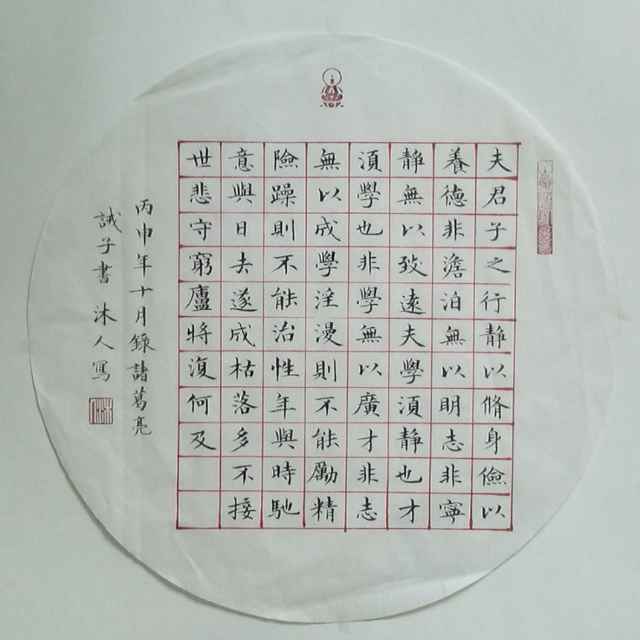 夫君子之行靜以脩身儉以
養德非澹泊無以明志非寧
靜無以致遠夫學須靜也才
須學也非學無以廣才非志
無以成學淫漫則不能勵精
險躁則不能治性年與時馳
意與日去遂成枯落多不接
世悲守窮廬將復何及
丙申年十月錄諸葛亮
誡子書 沐人寫